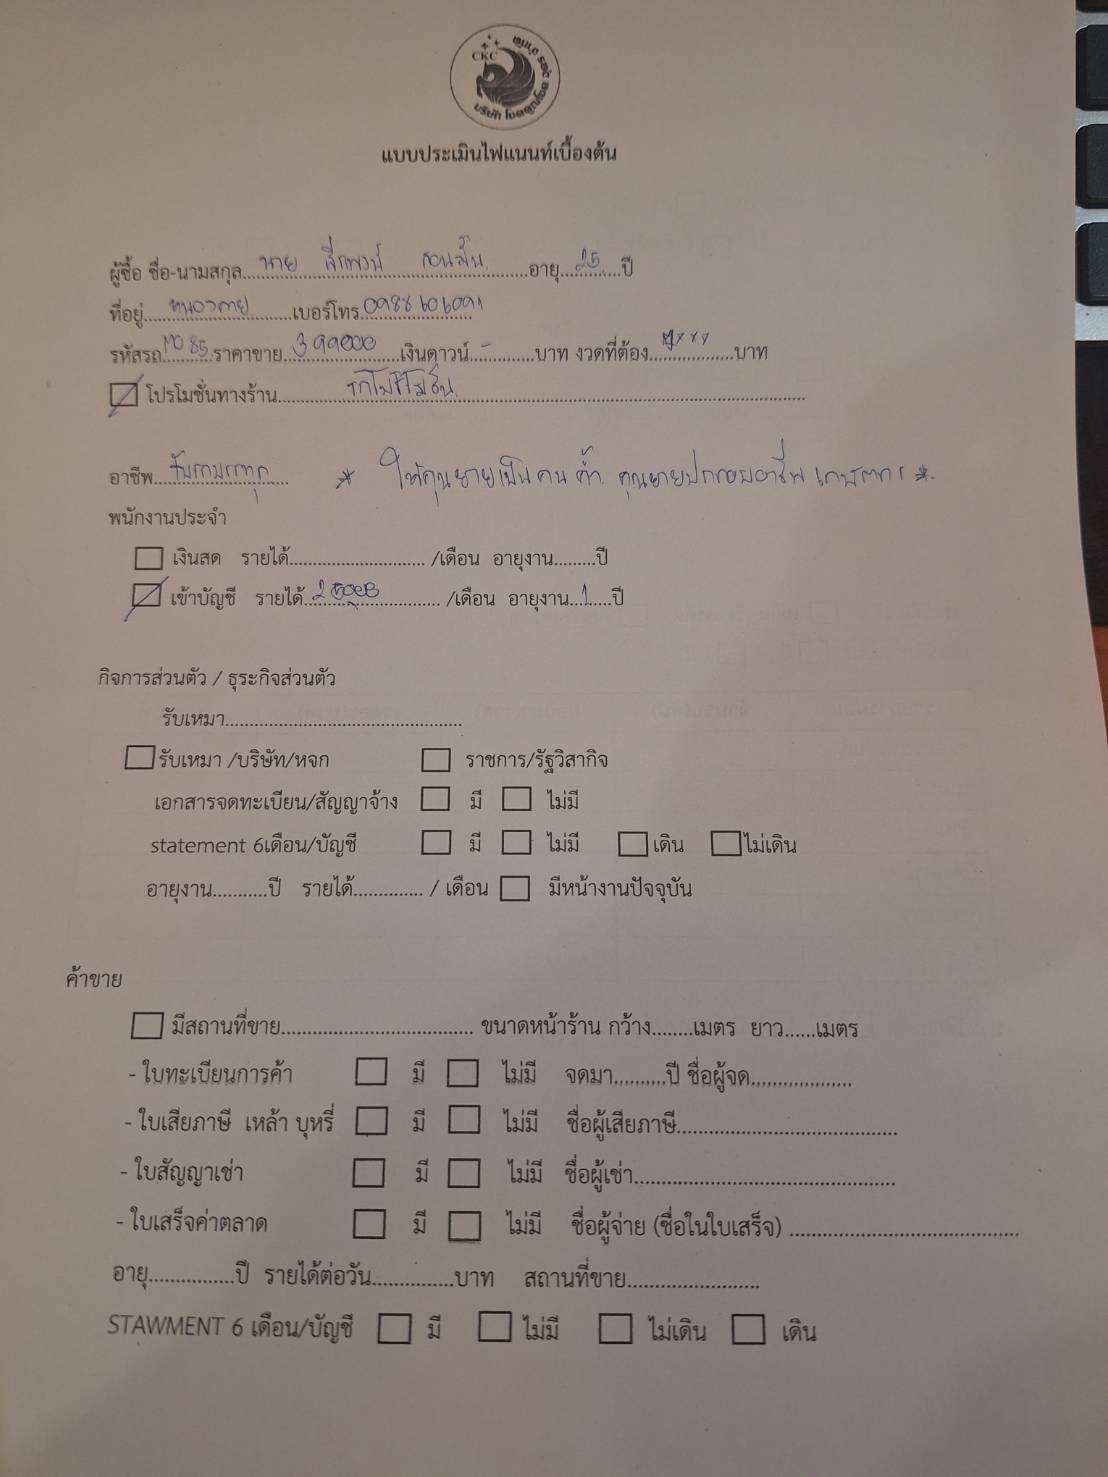 CKC
แบบประเมินไฟแนนท์เบื้องต้น
ผู้ซื้อ ชื่อ-นามสกุล นาย อายุ 25 ปี
ที่อยู่ เบอร์โทร
รหัสรถ MO 85 ราคาขาย 399000 เงินดาวน์ - บาท งวดที่ต้อง บาท
โปรโมชั่นทางร้าน
อาชีพ * ให้คุณยายเป็นคนค้ำ คุณยายประกอบอาชีพ เกษตกร *
พนักงานประจำ
เงินสด รายได้ /เดือน อายุงาน ปี
เข้าบัญชี รายได้ /เดือน อายุงาน 1 ปี
กิจการส่วนตัว / ธุระกิจส่วนตัว
รับเหมา
รับเหมา /บริษัท/หจก ราชการ/รัฐวิสากิจ
เอกสารจดทะเบียน/สัญญาจ้าง มี ไม่มี
statement 6เดือน/บัญชี มี ไม่มี เดิน ไม่เดิน
อายุงาน ปี รายได้ / เดือน มีหน้างานปัจจุบัน
ค้าขาย
มีสถานที่ขาย ขนาดหน้าร้าน กว้าง เมตร ยาว เมตร
- ใบทะเบียนการค้า มี ไม่มี จดมา ปี ชื่อผู้จด
- ใบเสียภาษี เหล้า บุหรี่ มี ไม่มี ชื่อผู้เสียภาษี
- ใบสัญญาเช่า มี ไม่มี ชื่อผู้เช่า
- ใบเสร็จค่าตลาด มี ไม่มี ชื่อผู้จ่าย (ชื่อในใบเสร็จ)
อายุ ปี รายได้ต่อวัน บาท สถานที่ขาย
STAWMENT 6 เดือน/บัญชี มี ไม่มี ไม่เดิน เดิน